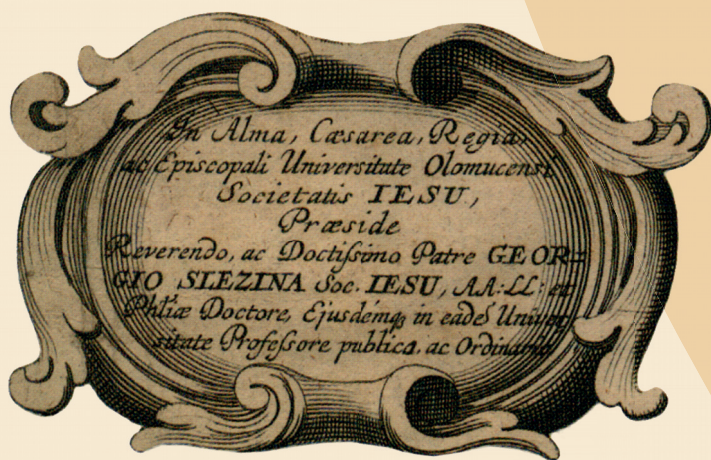 In Alma, Cæsarea, Regia,
ac Episcopali Universitate Olomucensi
Societatis IESU,
Præside
Reverendo, ac Doctissimo Patre GEOR=
GIO SLEZINA Soc. IESU, AA: LL: et
Phliæ Doctore, Ejusdémq3 in eadē Univer
sitate Professore publico, ac Ordinario